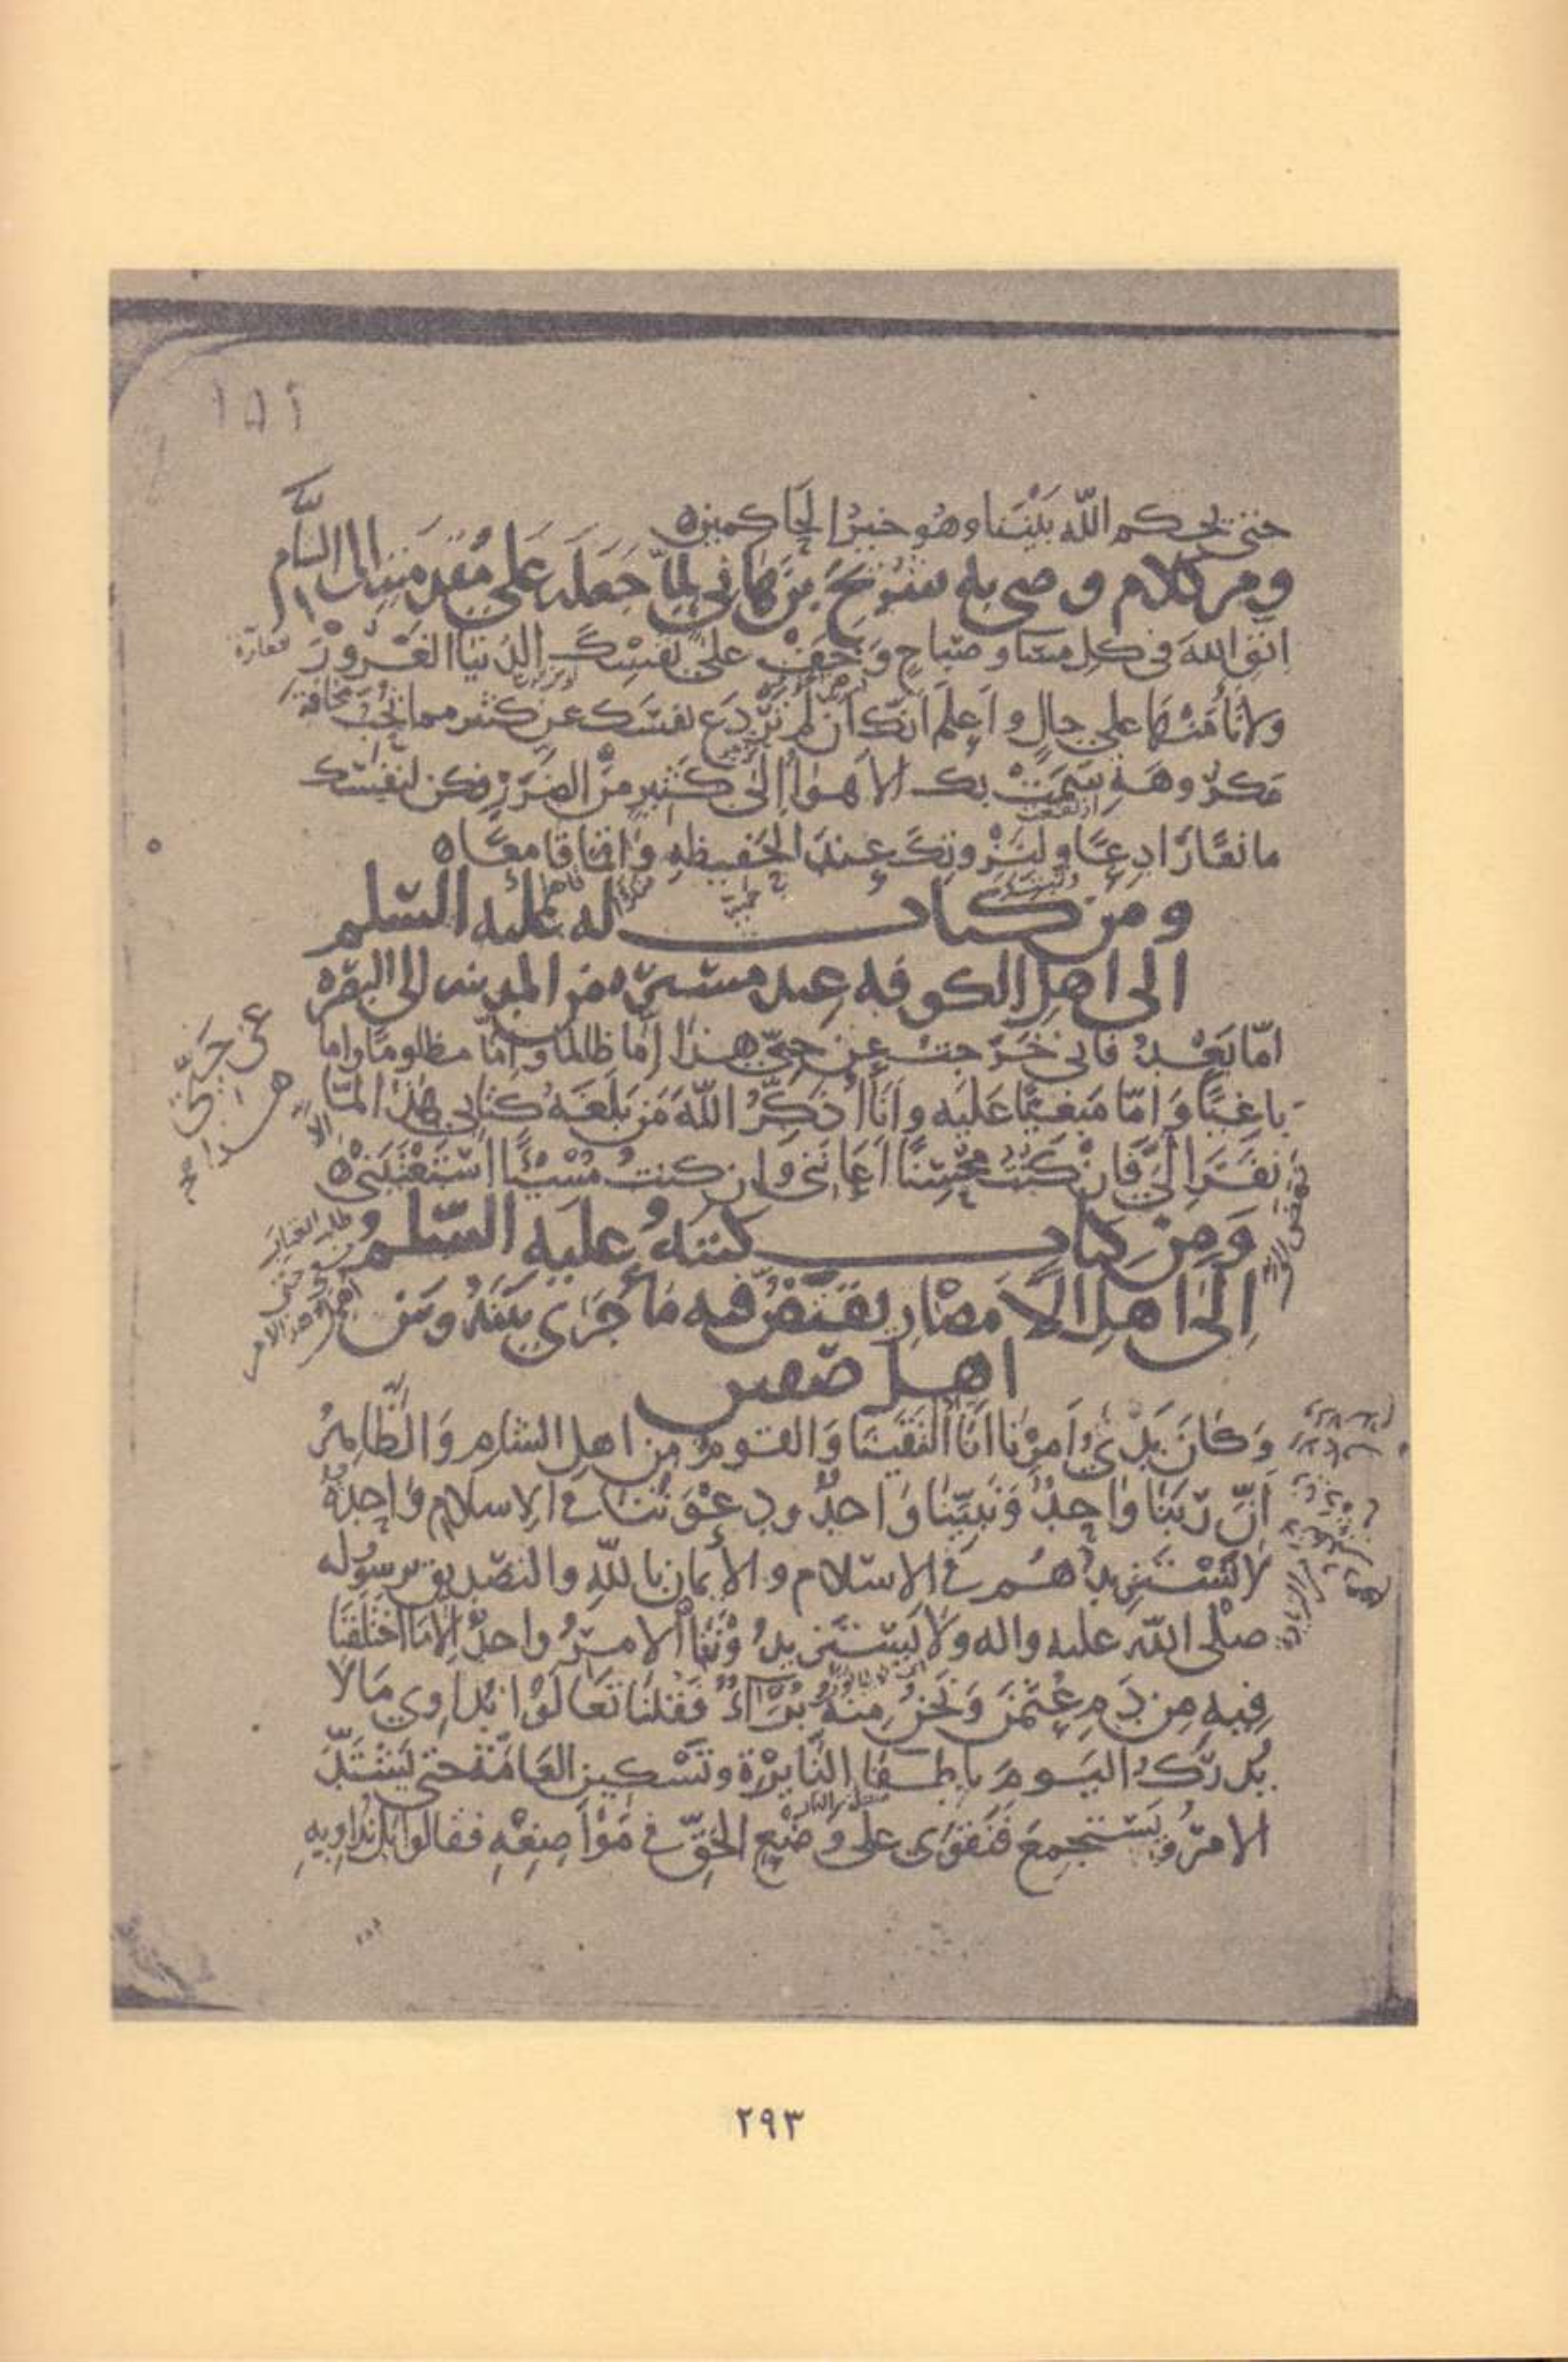 ١٥٢
حتى يحكم الله بَيْنَنا وهُو خيرُ الحَاكمين ه
ومن كلام وصى به شُرَيحَ بنَ هَانى لمّا جَعَلَهُ عَلى مُقَدّمَتِهِ الى الشّام
اتّقِ اللهَ فى كل مسَاء وصَباحٍ وَخَفْ على نفسِكَ الدُنيَا الغَرُورَ
ولا تأمَنْهَا على حالٍ واَعلَم اَنّكَ اِن لَم تَرْدَع نفسَكَ عن كثير مما تُحبُّ مخافةَ
مَكرُوهَهِ سَمَتْ بِكَ الاَهواءُ إلى كَثيرٍ مِنَ الضَرَرِ فكن لنفسك
مانعًا رَادِعًا ولِنَزْوتِكَ عِندَ الحَفيظةِ وَاقمًا قامعًا ه
ومن كتاب له عليه السّلم
الى اهل الكوفه عند مسيره من المدينه الى البصره
امّا بَعْدُ فانى خَرَجتُ عن حيّى هذا إمّا ظالمًا وامّا مظلومًا واما
باغيًا وَامّا مَبغيًّا عَليه وانَا اُذكِّرُ اللهَ مَن بَلَغَهُ كتابى هَذا لمّا
نفَرَ اِلَيَّ فَاِنْ كُنتُ مُحْسِنًا اَعانَنى وَاِن كنتُ مُسِيْئًا اسْتَعْتَبَنِىْ ه
وَمِنْ كِتابٍ كتبَهُ عليه السّلم
اِلى اهلِ الاَمصَارِ يَقتَصُّ فيه مَا جَرَى بَينَهُ وبَين
اهل صفين
وَكَانَ بَدْىُ اَمرِنَا انّا التَقَيْنَا وَالقومُ من اهلِ الشام وَالظّاهِرُ
اَنَّ رَبّنَا واحِدٌ وَنَبِيّنَا وَاحدٌ ودعْوَتَنَا فى الاسلام وَاحِدَةٌ
لا نَسْتَزيدُهُم فى الاسلام والاِيمان بالله والتصديق برسوله
صلى الله عليه واله ولا يَستَزيدُوْنَنَا الامرُ واحدٌ اِلا ما اختلَفنَا
فِيه مِن دَمِ عُثمٰنَ وَنَحنُ مِنهُ بُرَآءٌ فَقلنَا تَعَالَوْا نُدَاوِي مَا لا
يُدرَكُ اليَومَ بِاِطفَاءِ النّايِرَةِ وتَسْكِينِ العَامّةِ حتى يَشْتَدَّ
الامرُ ويَستجمِعَ فَنَقوَى على وَضعِ الحَقّ فى مَوَاضِعِهِ فقالوا بَل نُدَاوِيهِ
عن حيّى
هذا
٢٩٣